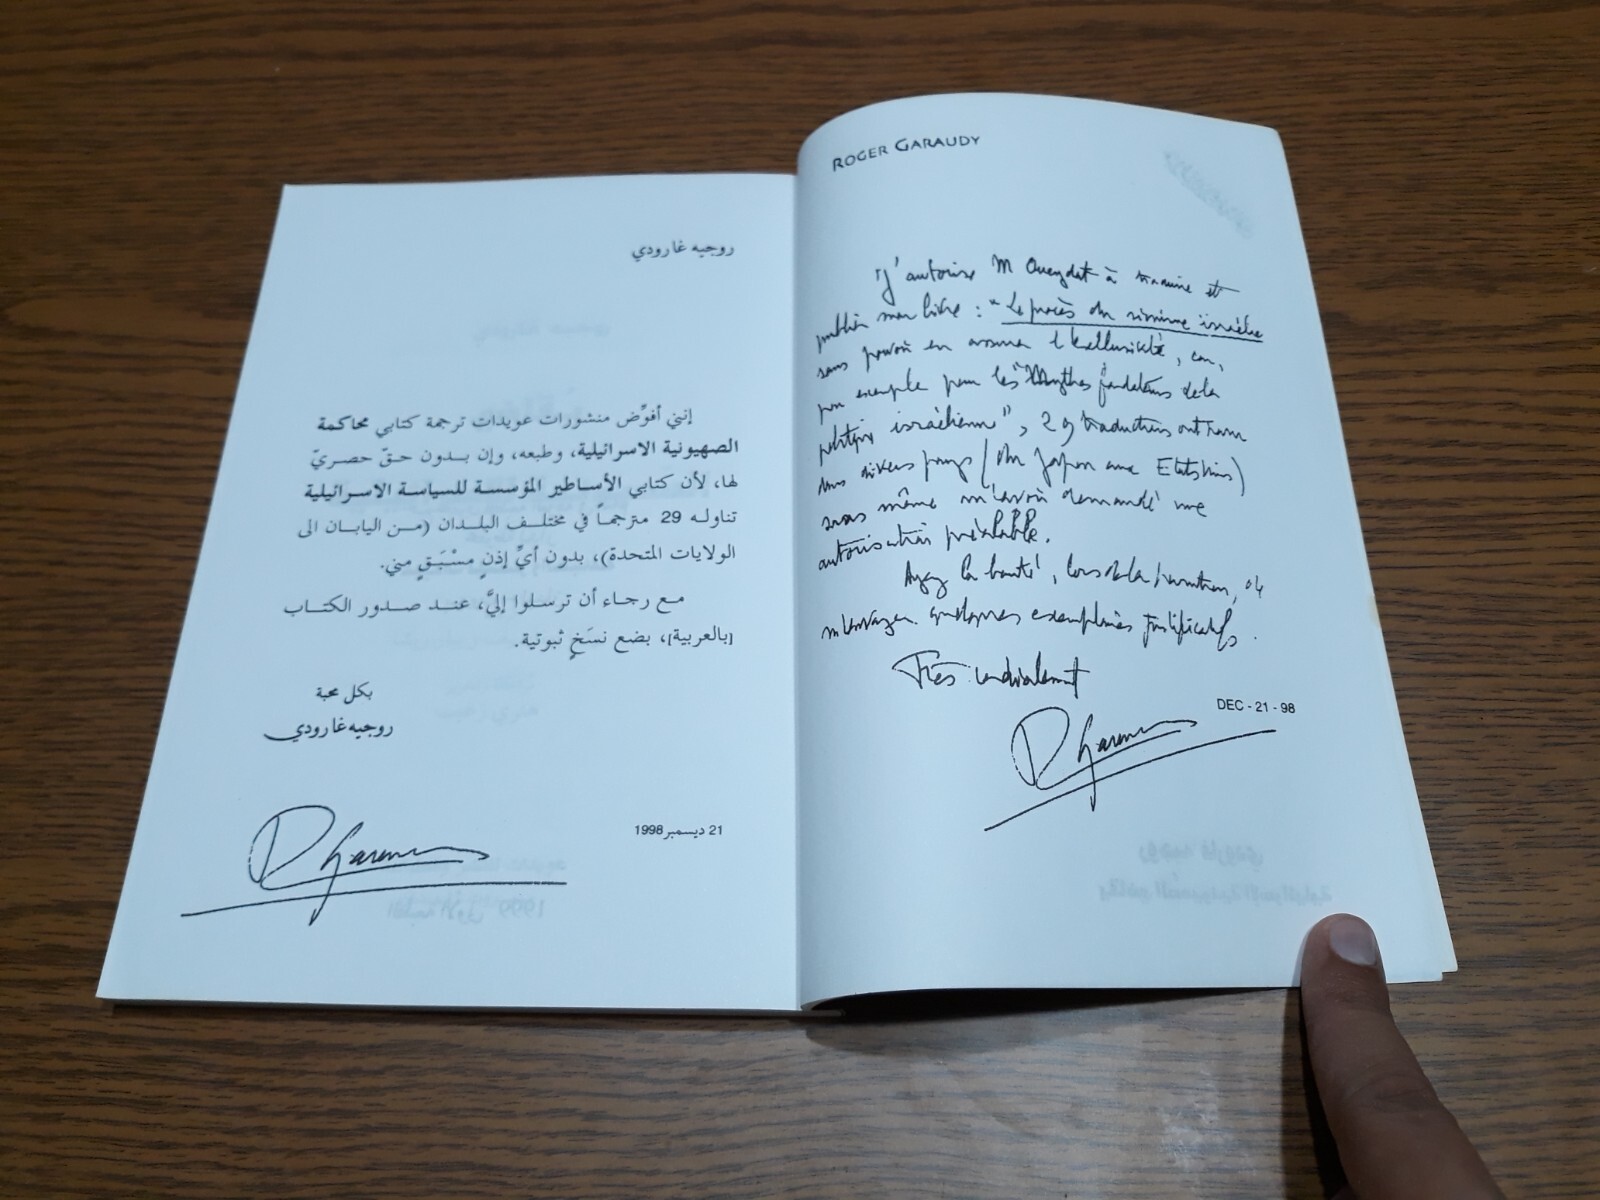 روجيه غارودي
إنني أفوِّض منشورات عويدات ترجمة كتابي محاكمة
الصهيونية الاسرائيلية، وطبعه، وإن بدون حقّ حصريّ
لها، لأن كتابي الأساطير المؤسسة للسياسة الاسرائيلية
تناوله 29 مترجماً في مختلف البلدان (من اليابان الى
الولايات المتحدة)، بدون أيِّ إذنٍ مسْبَقٍ مني.
مع رجاء أن ترسلوا إليَّ، عند صدور الكتاب
[بالعربية]، بضع نسَخٍ ثبوتية.
بكل محبة
روجيه غارودي
21 ديسمبر 1998
ROGER GARAUDY
"J'autorise M Oueydat à traduire et
publier mon livre : "Le procès du sionisme israélien
sans pouvoir en assurer l'exclusivité, car,
par exemple pour les "Mythes fondateurs de la
politique israélienne", 29 traductions ont paru
dans divers pays (du Japon aux Etats Unis)
sans même m'avoir demandé une
autorisation préalable.
Ayez la bonté, lors de la parution, de
m'envoyer quelques exemplaires justificatifs.
Très cordialement
DEC - 21 - 98